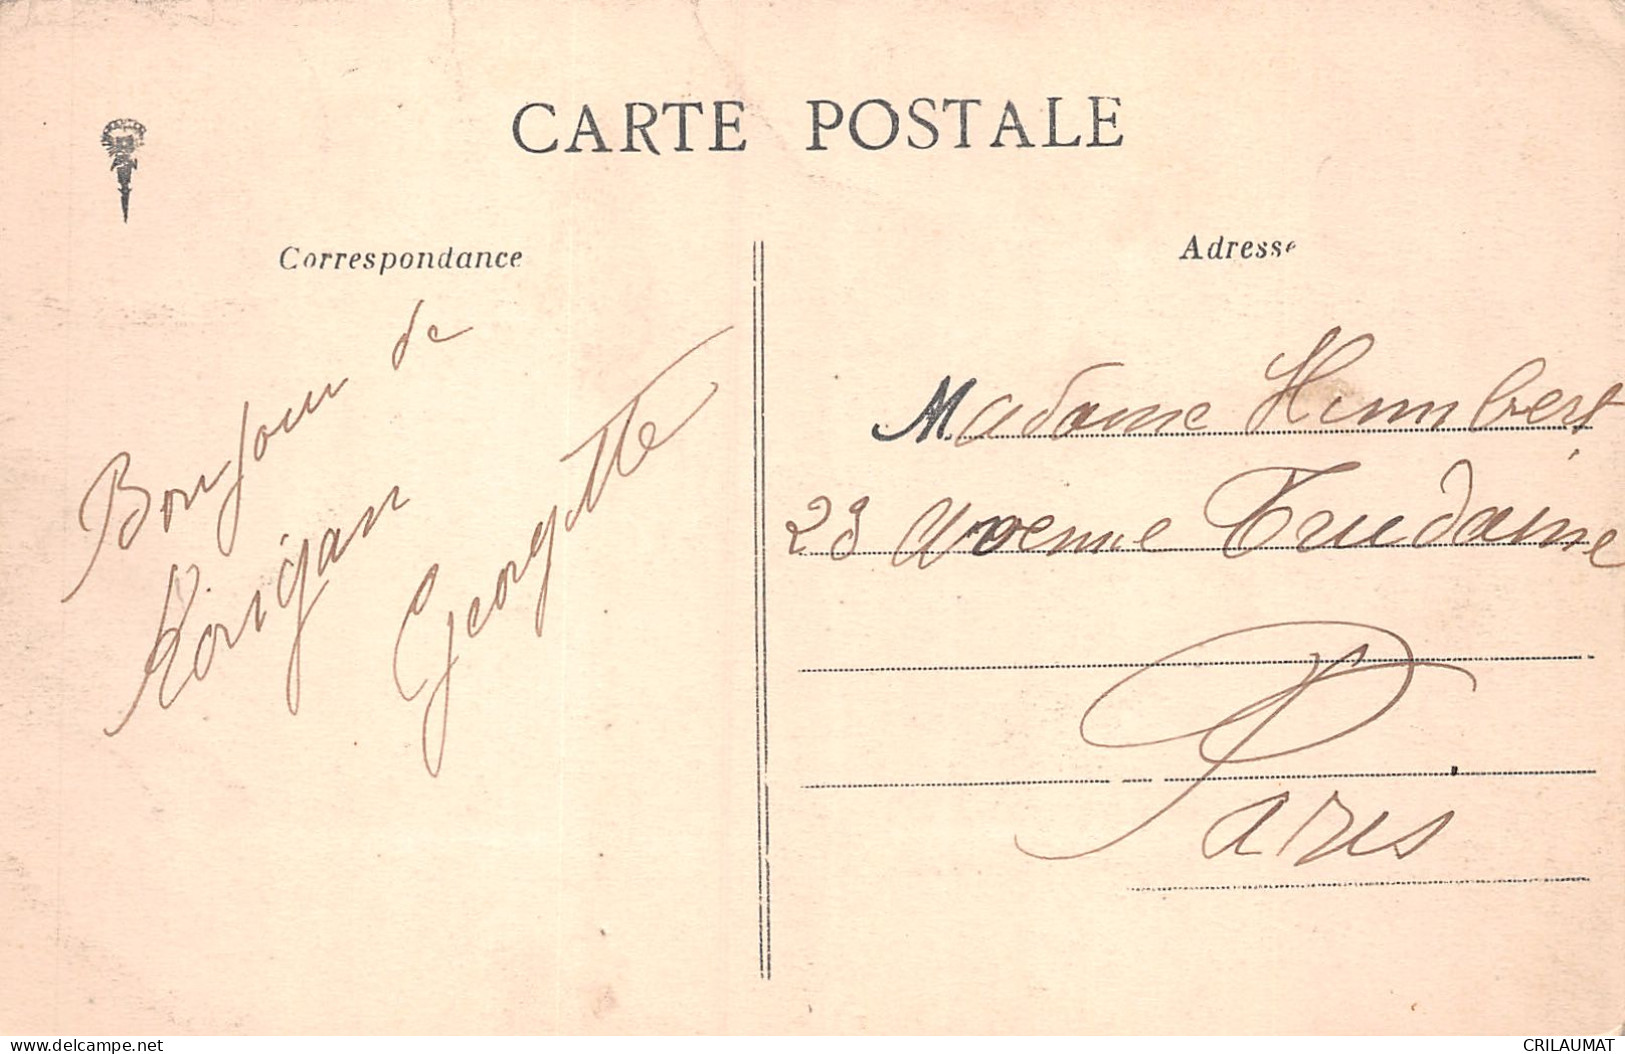 CARTE POSTALE
Correspondance
Adresse
Bonjour de
Korigan
Georgette
Madame Humbert
23 Avenue Trudaine
Paris
delcampe.net
CRILAUMAT